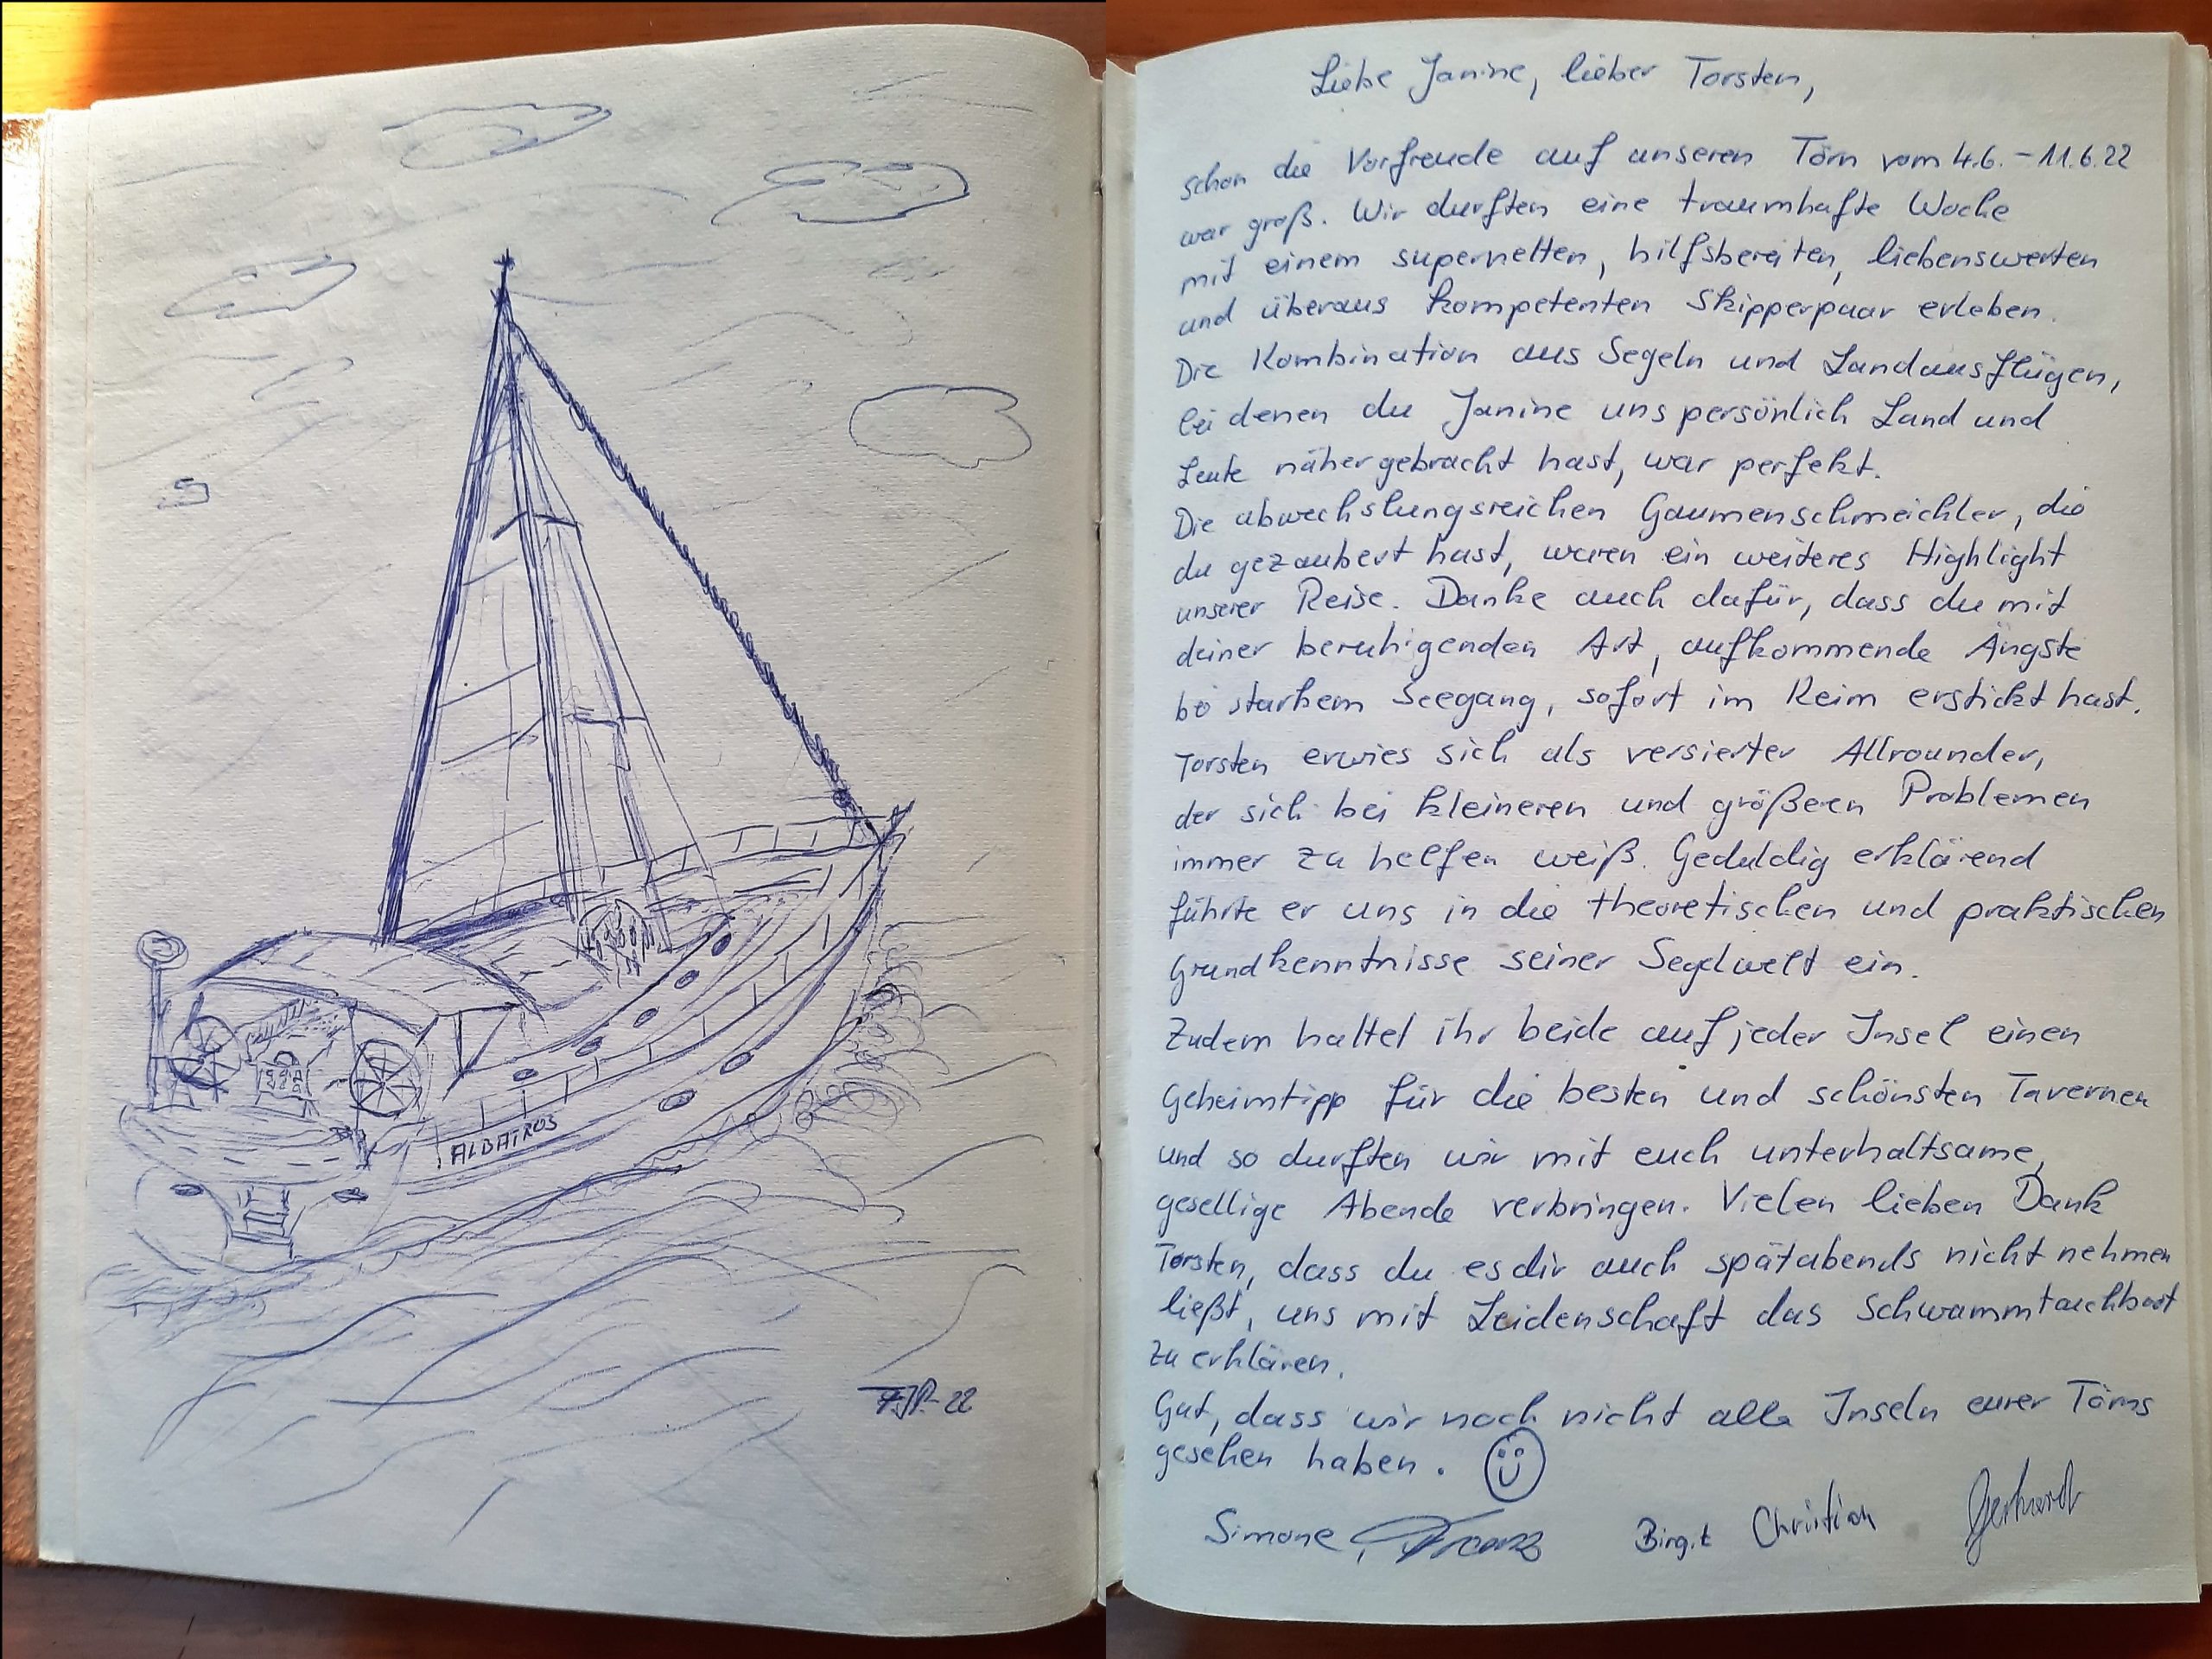 ALBATROS
FJP-22
Liebe Janine, lieber Torsten,
schon die Vorfreude auf unseren Törn vom 4.6. - 11.6.22
war groß. Wir durften eine traumhafte Woche
mit einem supernetten, hilfsbereiten, liebenswerten
und überaus kompetenten Skipperpaar erleben.
Die Kombination aus Segeln und Landausflügen,
bei denen du Janine uns persönlich Land und
Leute näher gebracht hast, war perfekt.
Die abwechslungsreichen Gaumenschmeichler, die
du gezaubert hast, waren ein weiteres Highlight
unserer Reise. Danke auch dafür, dass du mit
deiner beruhigenden Art, aufkommende Ängste
bei starkem Seegang, sofort im Keim erstickt hast.
Torsten erwies sich als versierter Allrounder,
der sich bei kleineren und größeren Problemen
immer zu helfen weiß. Geduldig erklärend
führte er uns in die theoretischen und praktischen
Grundkenntnisse seiner Segelwelt ein.
Zudem haltet ihr beide auf jeder Insel einen
Geheimtipp für die besten und schönsten Tavernen
und so durften wir mit euch unterhaltsame,
gesellige Abende verbringen. Vielen lieben Dank
Torsten, dass du es dir auch spätabends nicht nehmen
ließt, uns mit Leidenschaft das Schwammtauchboot
zu erklären.
Gut, dass wir noch nicht alle Inseln eurer Törns
gesehen haben.
Simone, Franz Birgit Christian Gerhard